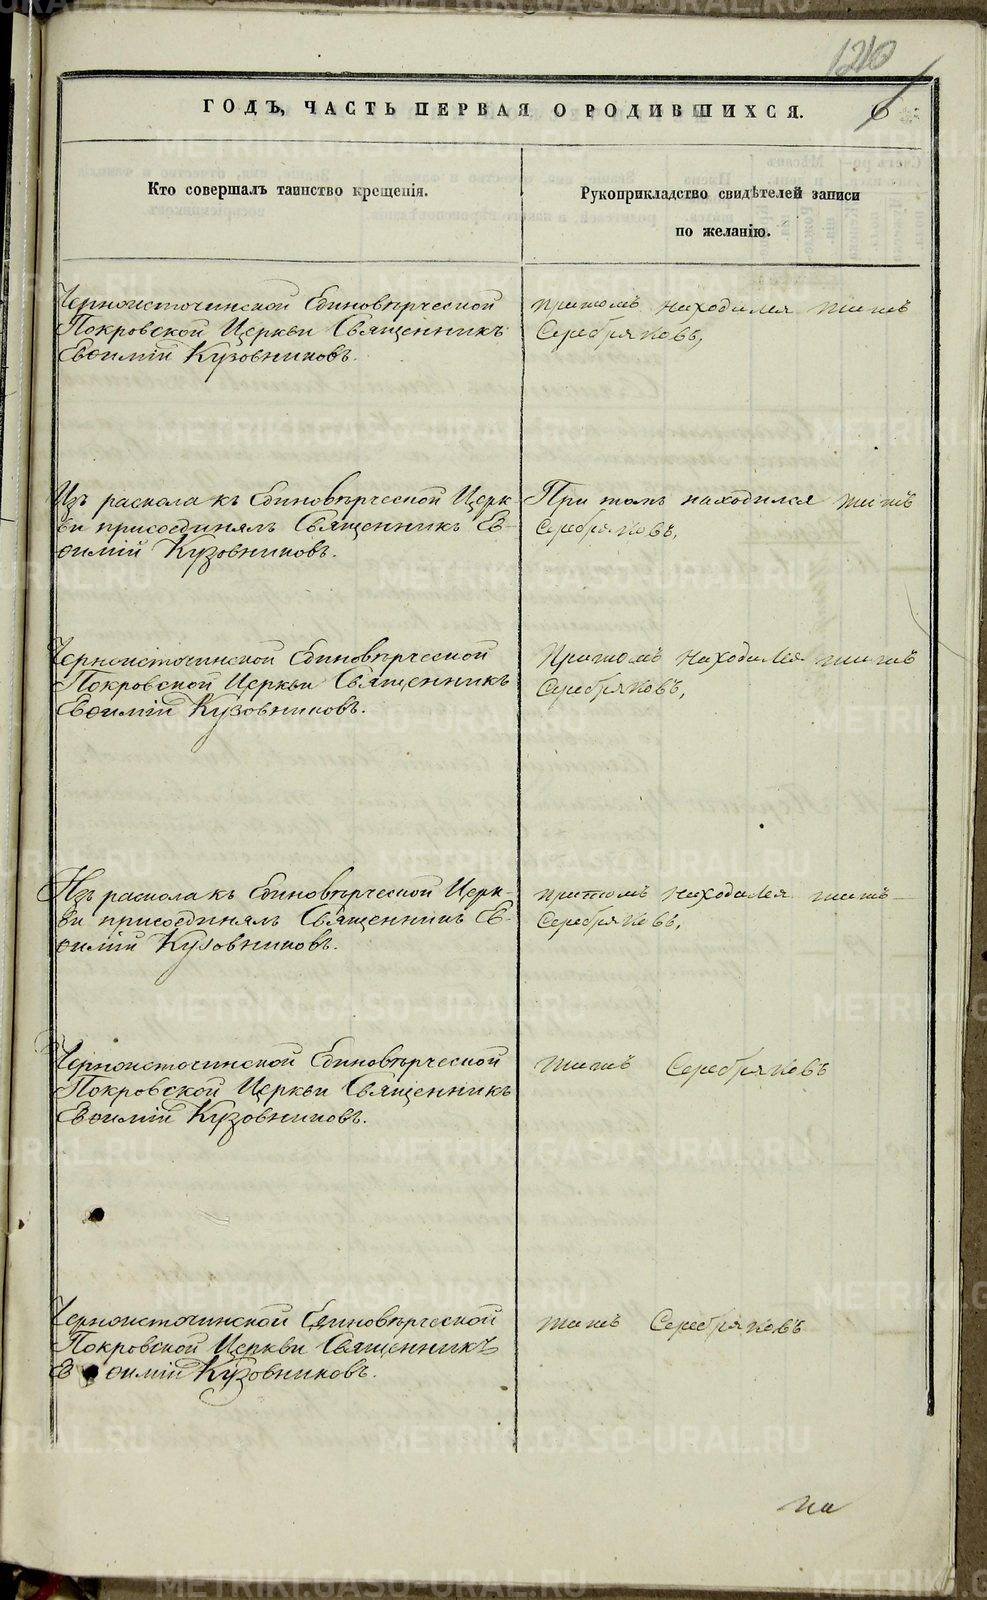 120
ГОДЪ, ЧАСТЬ ПЕРВАЯ О РОДИВШИХСЯ.
6
Кто совершалъ таинство крещенія.
Рукоприкладство свидѣтелей записи
по желанію.
Черноисточинской Единовѣрческой
Покровской Церкви Священникъ
Евѳимій Кузовниковъ.
притомъ находился
Серебряковъ,
Изъ раскола къ Единовѣрческой Церк-
ви присоединялъ Священникъ Ев-
ѳимій Кузовниковъ.
При томъ находился
Серебряковъ,
Черноисточинской Единовѣрческой
Покровской Церкви Священникъ
Евѳимій Кузовниковъ.
Притомъ находился
Серебряковъ,
Изъ раскола къ Единовѣрческой Церк-
ви присоединялъ Священникъ Ев-
ѳимій Кузовниковъ.
притомъ находился
Серебряковъ,
Черноисточинской Единовѣрческой
Покровской Церкви Священникъ
Евѳимій Кузовниковъ.
Серебряковъ
Черноисточинской Единовѣрческой
Покровской Церкви Священникъ
Евѳимій Кузовниковъ.
Серебряковъ
METRIKI.GASO-URAL.RU